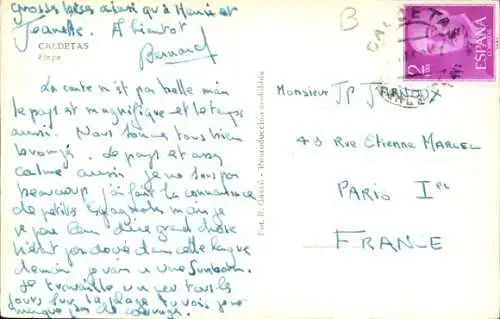 grosses bises ainsi qu'à Henri et
Jeanette. A bientôt
Bernard
CALDETAS
Playa
La carte n'est pas belle mais
le pays est magnifique et le temps
aussi. Nous sommes tous bien
bronzés. Le pays est assez
calme aussi je ne sors pas
beaucoup j'ai fait la connaissance
de petites Espagnoles mais je
ne peux leur dire grand chose
n'étant pas doué dans cette langue
demain je vais a une Surboum.
Je travaille un peu tous les
jours sur la plage tu vois je ne
manque pas de courage.
Fot. R. Gassó - Reproducción prohibida
B
CALDETAS
2
PTAS
ESPAÑA
CORREOS
Monsieur JP JARNOUX
43 Rue Etienne MARCEL
PARIS Ier
FRANCE